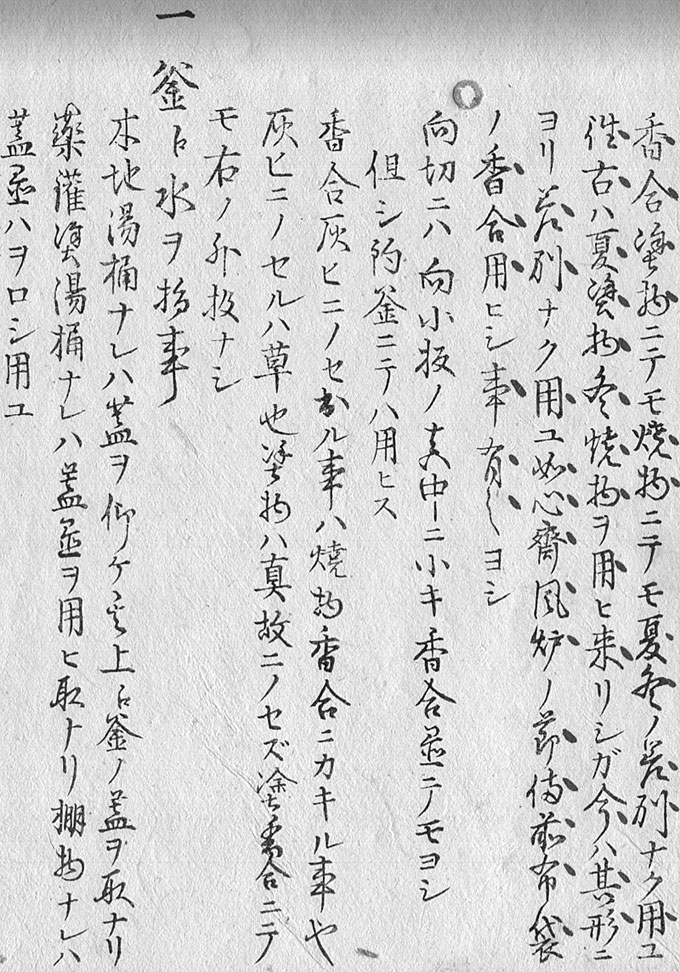 香合塗物ニテモ焼物ニテモ夏冬ノ差別ナク用ユ
往古ハ夏塗物冬焼物ヲ用ヒ来リシガ今ハ其形ニ
ヨリ差別ナク用ユ如心齋風炉ノ節備前布袋
ノ香合用ヒシ事有之ヨシ
向切ニハ向小板ノ真中ニ小キ香合置テモヨシ
但シ釣釜ニテハ用ヒス
香合灰ヒニノセ出ル事ハ焼物香合ニカキル事也
灰ヒニノセルハ草也塗物ハ真故ニノセズ塗香合ニテ
モ右ノ外扱ナシ
一 釜ニ水ヲ指事
木地湯桶ナレハ蓋ヲ仰ケ其上ニ釜ノ蓋ヲ取ナリ
薬鑵塗湯桶ナレハ蓋置ヲ用ヒ取ナリ棚物ナレハ
蓋置ハヲロシ用ユ